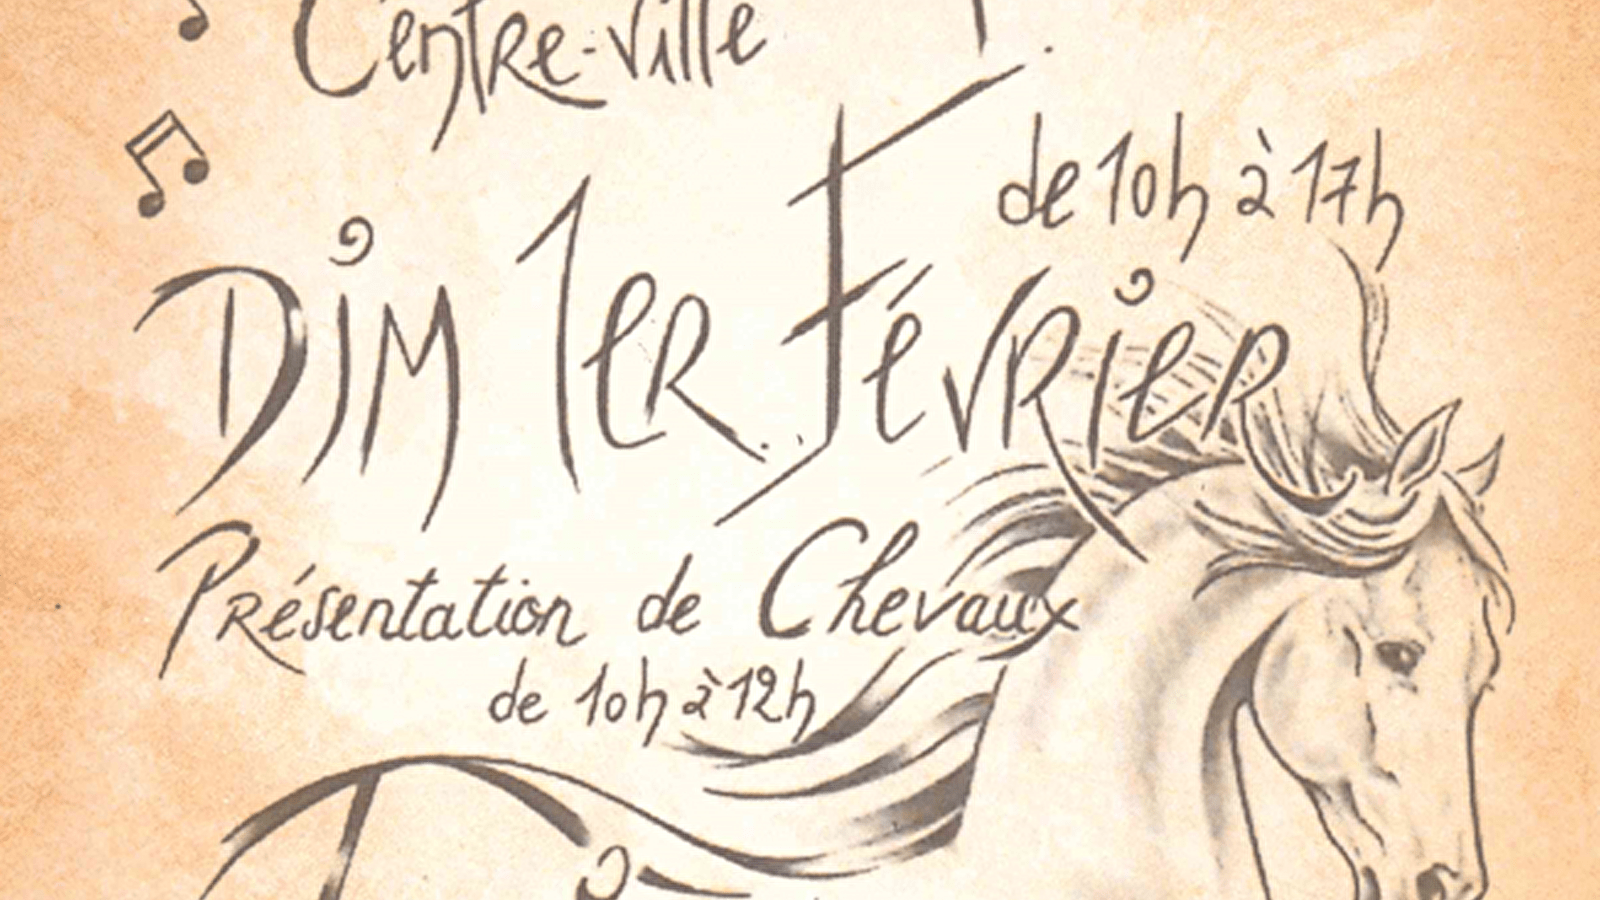 Centre-ville
de 10h à 17h
Dim 1er Février
Présentation de Chevaux
de 10h à 12h